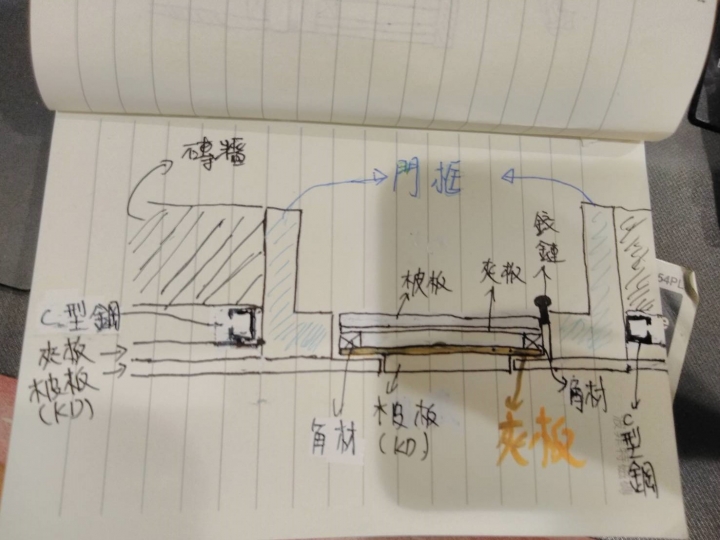 磚牆
門框
鉸
鏈
柀板
夾板
C型鋼
夾板
柀板
(KD)
角材
柀板
(KD)
夾板
角材
C
型
鋼
54PL